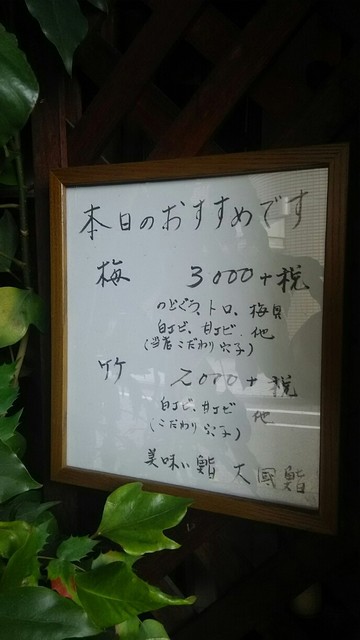 本日のおすすめです
梅 3000+税
のどぐろ、トロ、梅貝
白エビ、甘エビ 他
(当店こだわり穴子)
竹 2000+税
白エビ、甘エビ 他
(こだわり穴子)
美味い鮨 大國鮨